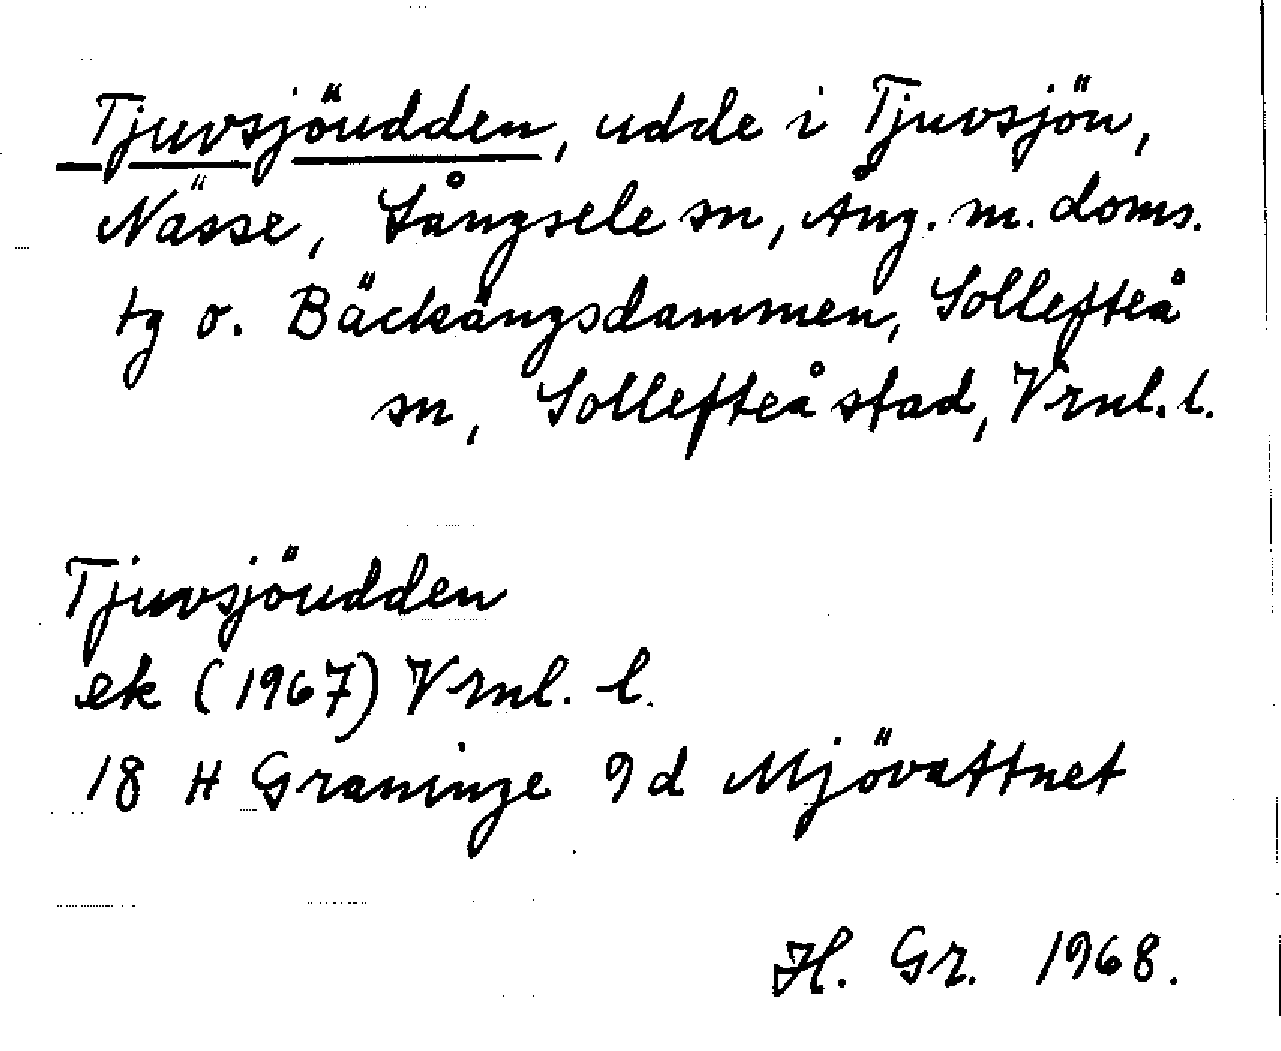 Tjuvsjöudden, udde i Tjuvsjön,
Nässe, Långsele sn, Ång. m. doms.
tg o. Bäckängsdammen, Sollefteå
sn, Sollefteå stad, Vrnl. l.
Tjuvsjöudden
ek (1967) Vrnl. l.
18 H Graninge 9d Mjövattnet
H. Gr. 1968.